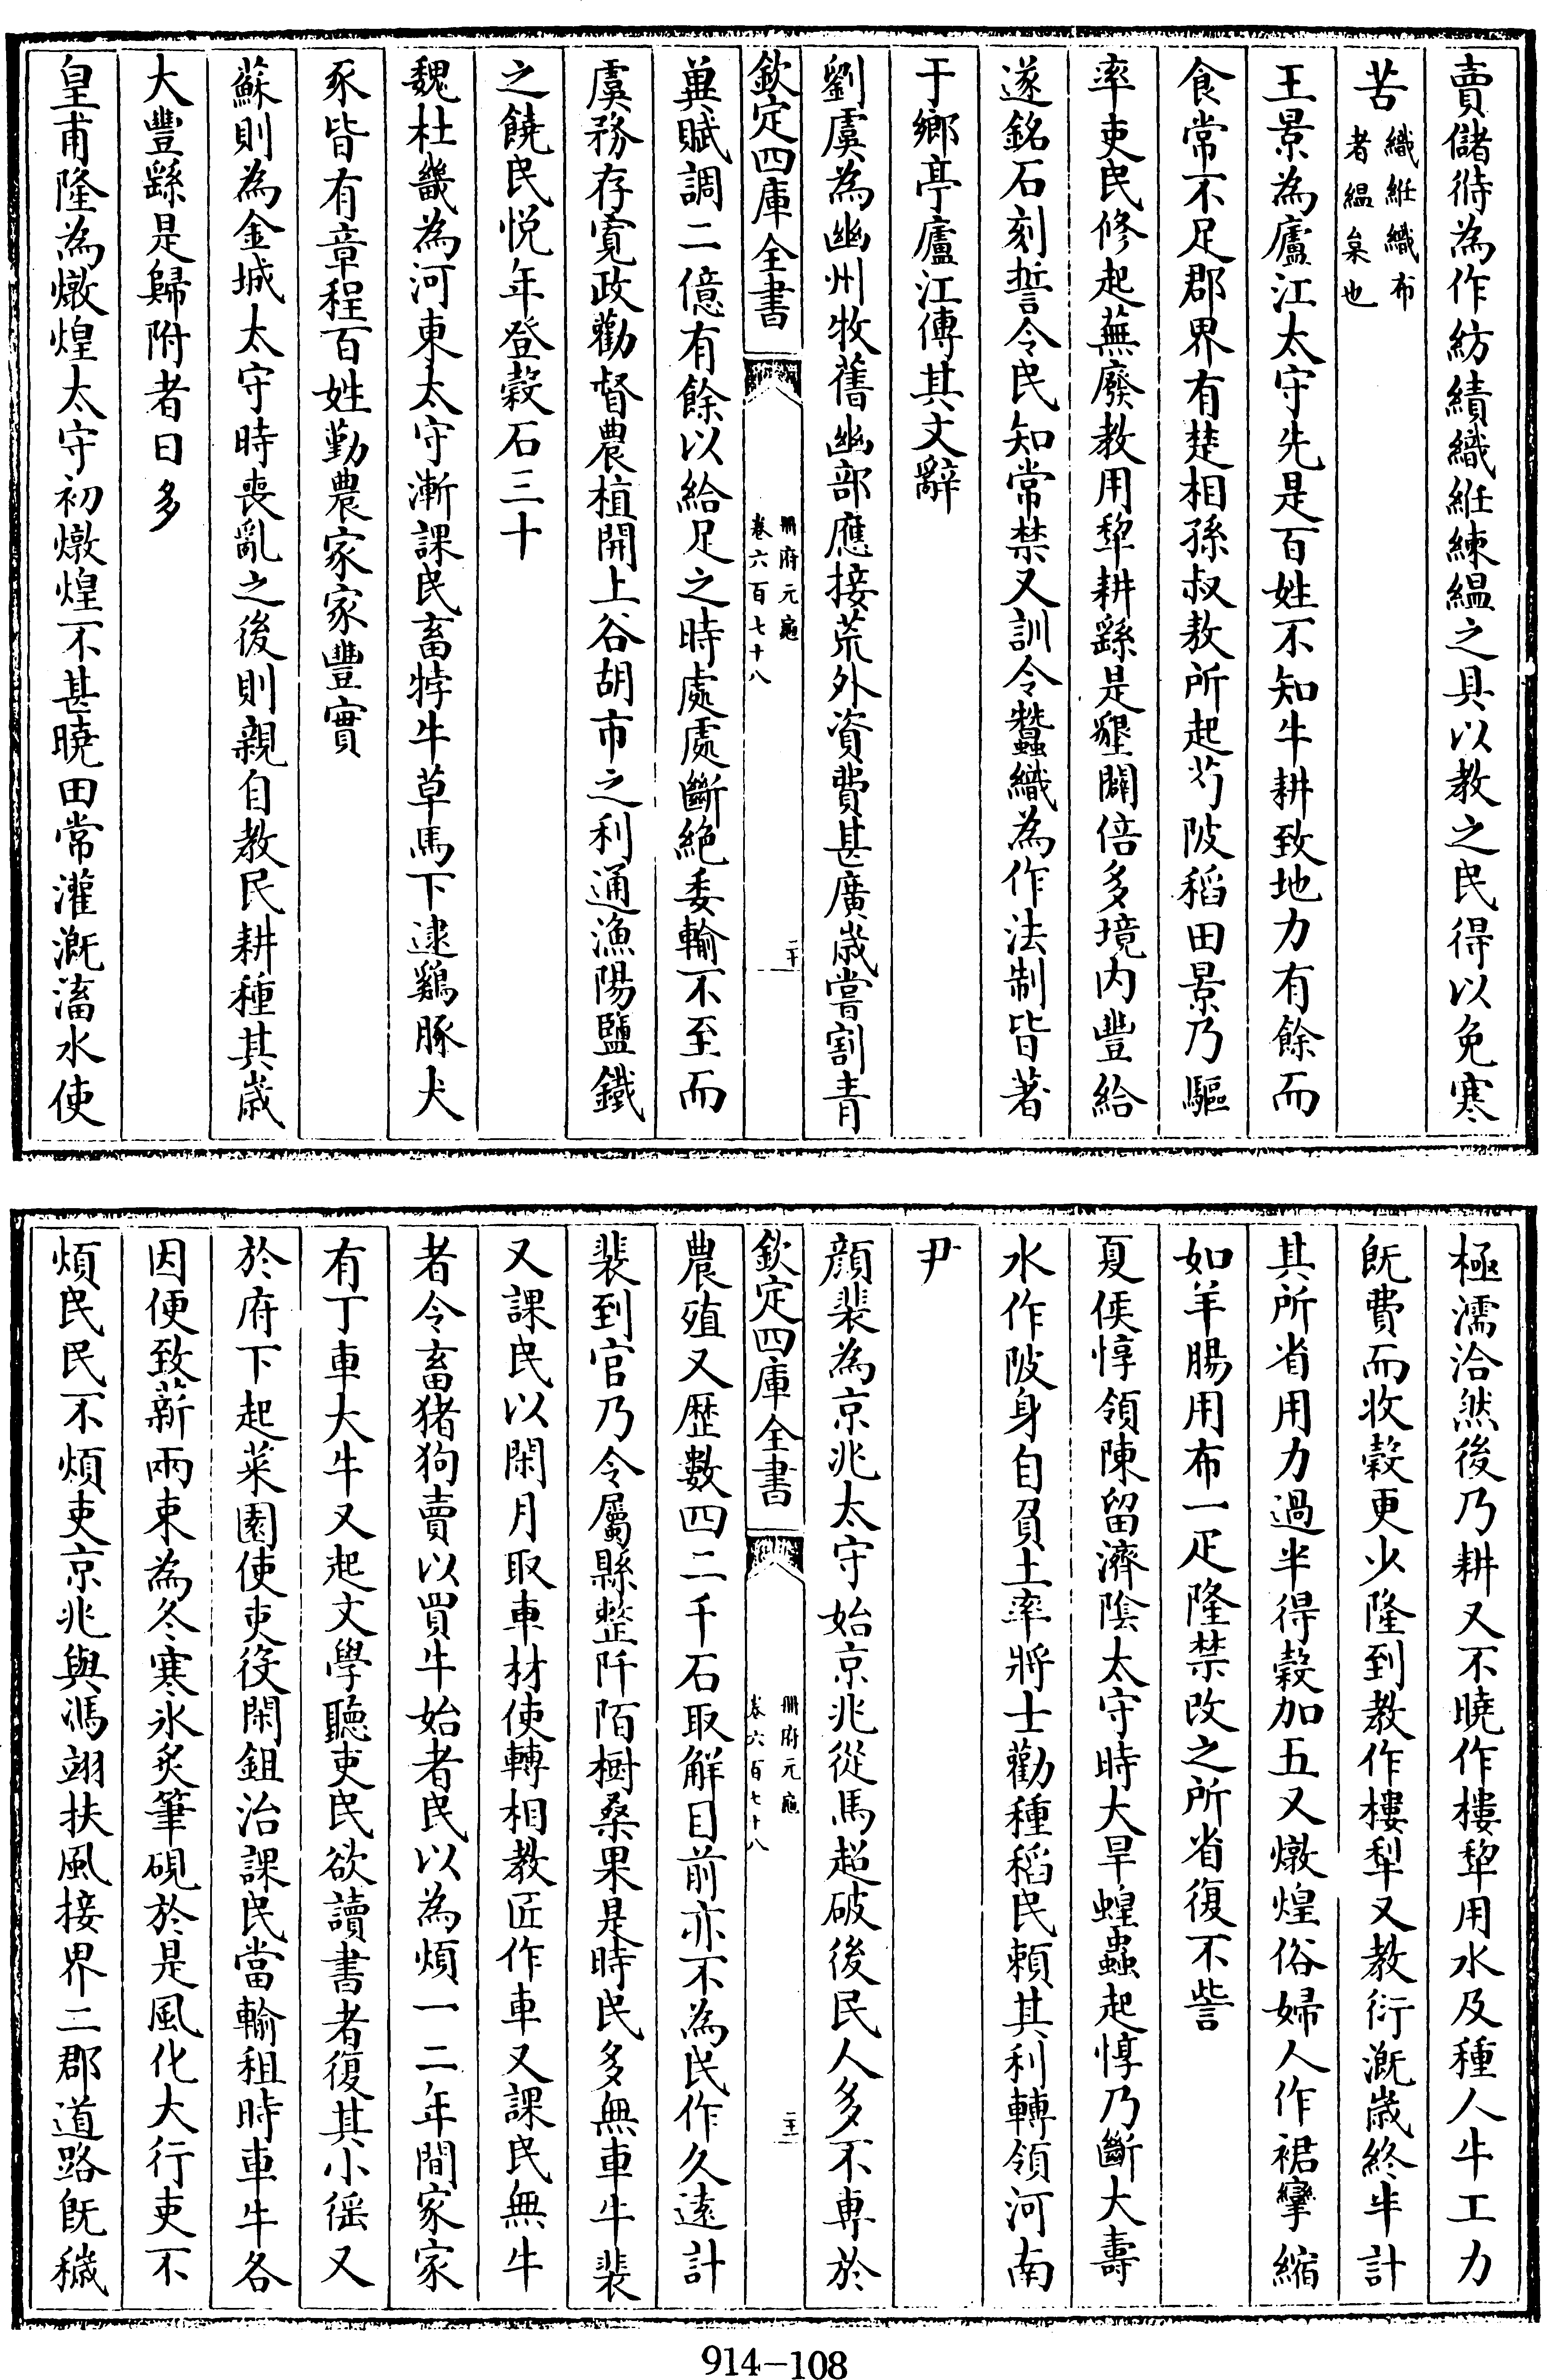 賣儲偫為作紡績織絍練緼之具以教之民得以免寒
苦織絍織布者緼枲也
王景為廬江太守先是百姓不知牛耕致地力有餘而
食常不足郡界有楚相孫叔敖所起芍陂稻田景乃驅
率吏民修起蕪廢教用犂耕繇是墾闢倍多境内豐給
遂銘石刻誓令民知常禁又訓令蠶織為作法制皆著
于鄉亭廬江傳其文辭
劉虞為幽州牧舊幽部應接荒外資費甚廣歳嘗割青
欽定四庫全書
冊府元龜
卷六百七十八
二十
兾賦調二億有餘以給足之時處處斷絶委輸不至而
虞務存寛政勸督農植開上谷胡市之利通漁陽鹽鐵
之饒民悦年登穀石三十
魏杜畿為河東太守漸課民畜牸牛草馬下逮鷄豚犬
豕皆有章程百姓勤農家家豐實
蘇則為金城太守時喪亂之後則親自教民耕種其歳
大豐繇是歸附者日多
皇甫隆為燉煌太守初燉煌不甚曉田常灌溉滀水使
極濡洽然後乃耕又不曉作樓犂用水及種人牛工力
旣費而收穀更少隆到教作樓犁又教衍溉歳終半計
其所省用力過半得穀加五又燉煌俗婦人作裙攣縮
如羊腸用布一疋隆禁改之所省復不訾
夏侯惇領陳留濟隂太守時大旱蝗蟲起惇乃斷大壽
水作陂身自負土率將士勸種稻民賴其利轉領河南
尹
顔裴為京兆太守始京兆從馬超破後民人多不專於
欽定四庫全書
冊府元龜
卷六百七十八
二十一
農殖又歴數四二千石取解目前亦不為民作久遠計
裴到官乃令屬縣整阡陌樹桑果是時民多無車牛裴
又課民以閑月取車材使轉相教匠作車又課民無牛
者令畜猪狗賣以買牛始者民以為煩一二年間家家
有丁車大牛又起文學聽吏民欲讀書者復其小徭又
於府下起菜園使吏役閑鉏治課民當輸租時車牛各
因便致薪兩束為冬寒氷炙筆硯於是風化大行吏不
煩民民不煩吏京兆與馮翊扶風接界二郡道路旣穢
914-108